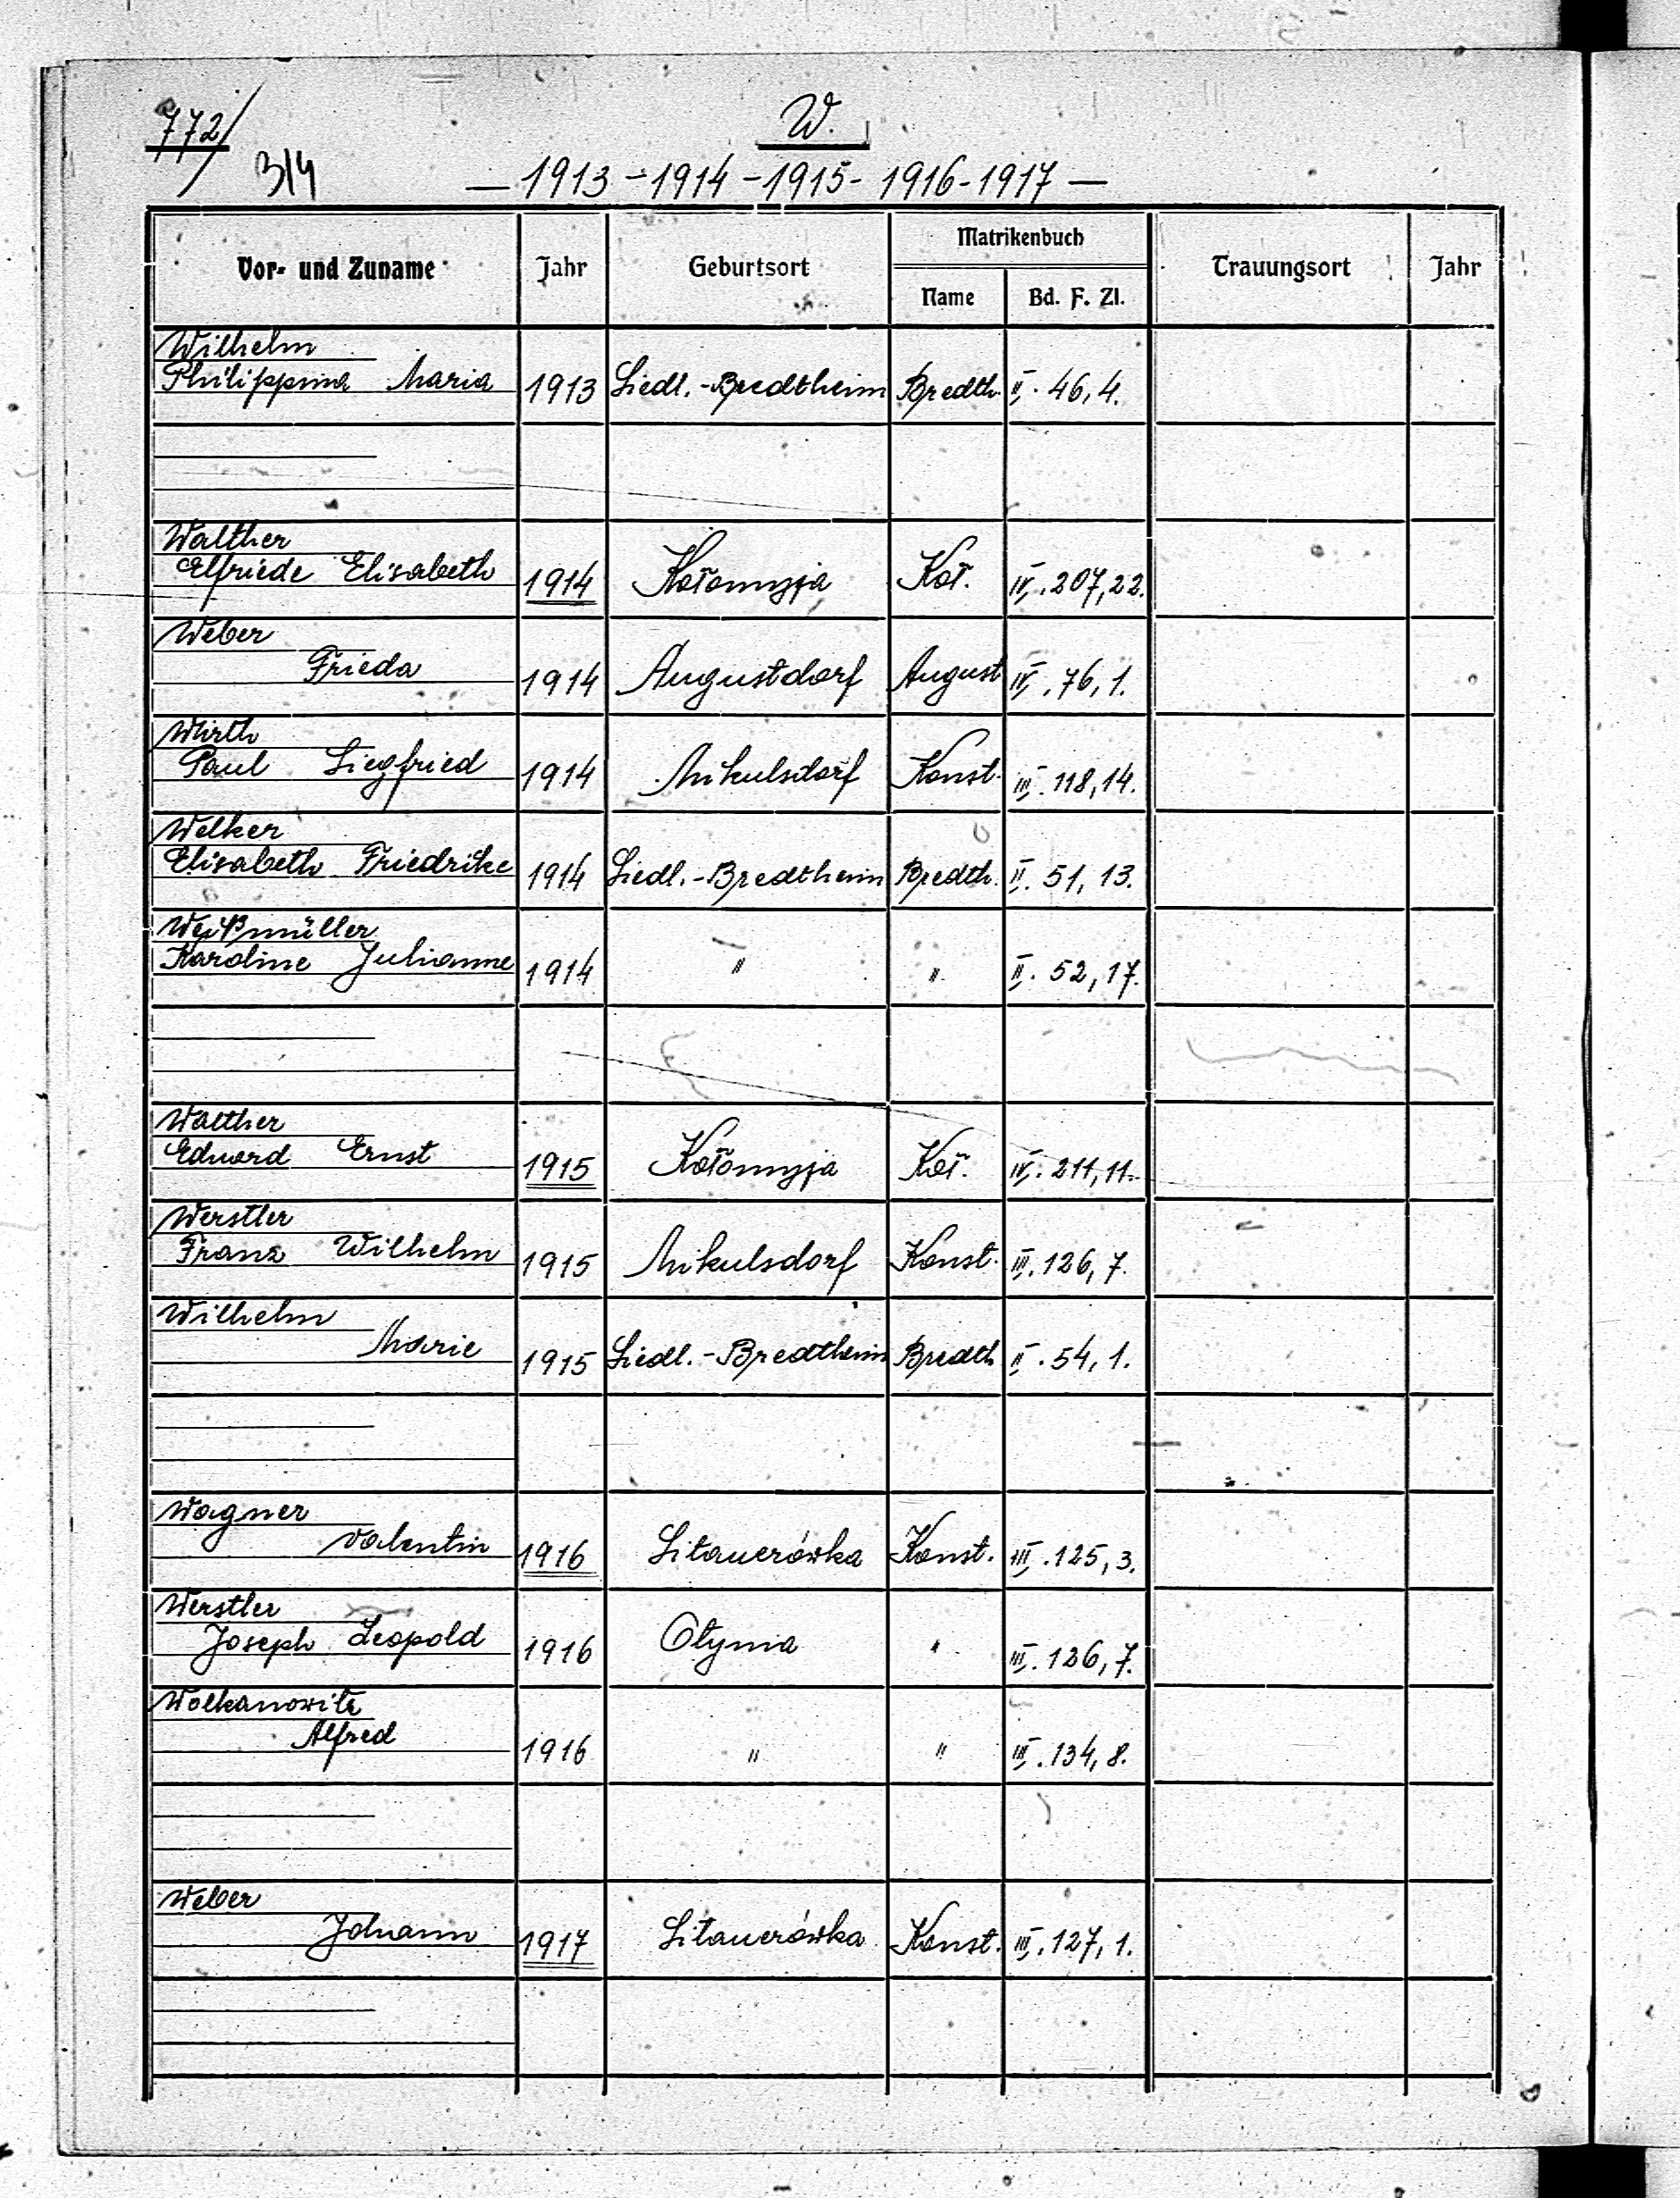 772/
3/4
W.
— 1913 - 1914 - 1915 - 1916 - 1917 —
Vor- und Zuname Jahr Geburtsort Matrikenbuch Trauungsort Jahr
Name Bd. F. Zl.
Wilhelm
Philippina Maria 1913 Siedl.-Bredtheim Bredth. II. 46, 4.
Walther
Elfriede Elisabeth 1914 Kołomyja Koł. IV. 207, 22.
Weber
Frieda 1914 Augustdorf August IV. 76, 1.
Wirth
Paul Siegfried 1914 Mikulsdorf Konst. III. 118, 14.
Welker
Elisabeth Friedrike 1914 Siedl.-Bredtheim Bredth. II. 51, 13.
Weißmüller
Karoline Julianne 1914 " " II. 52, 17.
Walther
Eduard Ernst 1915 Kołomyja Koł. IV. 211, 11.
Werstler
Franz Wilhelm 1915 Mikulsdorf Konst. III. 126, 7.
Wilhelm
Marie 1915 Siedl.-Bredtheim Bredth II. 54, 1.
Wagner
Valentin 1916 Sitauerówka Konst. III. 125, 3.
Werstler
Joseph Leopold 1916 Otynia " III. 126, 7.
Wolkanowitz
Alfred 1916 " " III. 134, 8.
Weber
Johann 1917 Sitauerówka Konst. III. 127, 1.